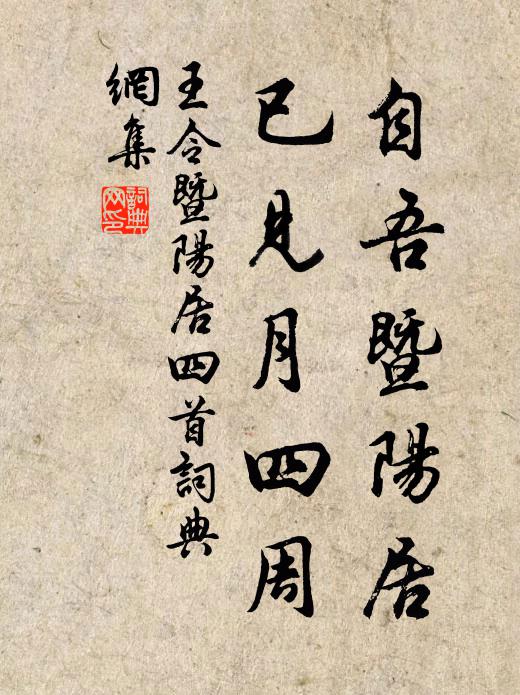 自吾暨陽居
已見月四周
王令暨陽居四首詞典
網集
詞典網印